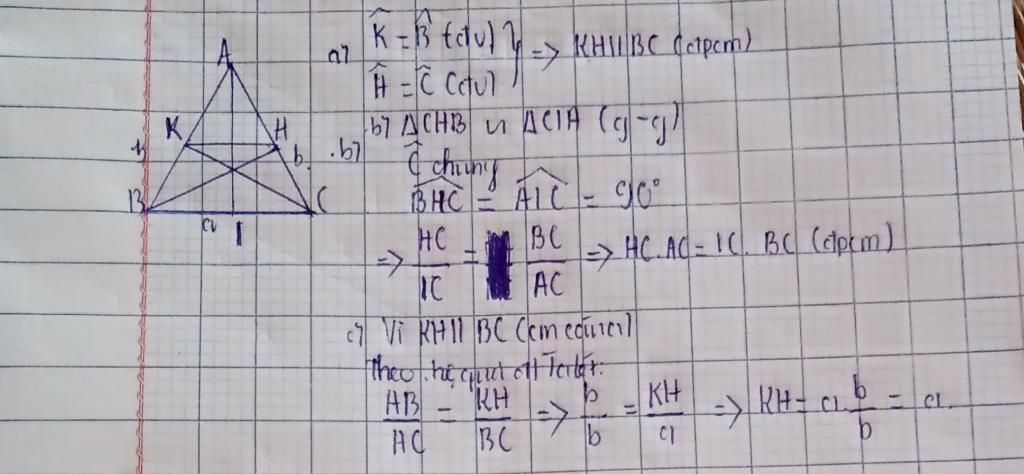 A
K H
b b
B C
a I
a) K̂ = B̂ (đv) } => KH || BC (đpcm)
Ĥ = Ĉ (đv)
b) ΔCHB ∽ ΔCIA (g-g)
.b)
Ĉ chung
\widehat{BHC} = \widehat{AIC} = 90°
=> HC/IC = BC/AC => HC.AC = IC.BC (đpcm)
c) Vì KH || BC (cm câu a)
Theo hệ quả đl Talet:
AB/AC = KH/BC => b/b = KH/a => KH = a.b/b = a.